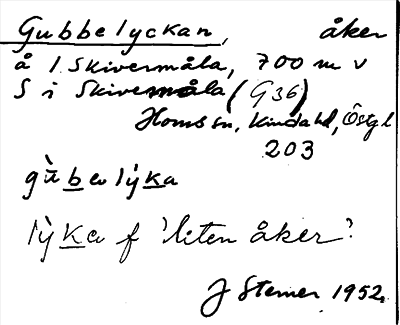 Gubbelyckan, åker
å 1 Skivermåla, 700 m v
S i Skivermåla (G36)
Homb sn, Kinda hd, Östgl
203
gùbelýka
lýka f 'liten åker'.
J Sterner 1952.